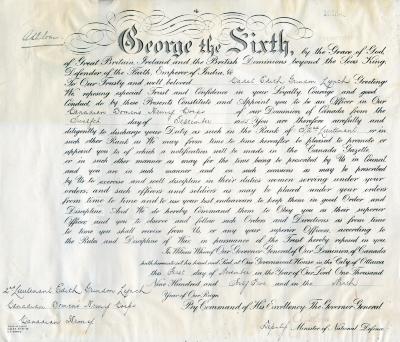 George the Sixth, by the Grace of God,
of Great Britain, Ireland and the British Dominions beyond the Seas King,
Defender of the Faith, Emperor of India, &c
To Our Trusty and well beloved Cadet Edith Greeting
We reposing especial Trust and Confidence in your Loyalty, Courage and good
Conduct, do by these Presents Constitute and Appoint you to be an Officer in Our
Canadian Women's Army Corps of our Dominion of Canada from the
Twelfth day of September You are therefore carefully and
diligently to discharge your Duty as such in the Rank of 2nd Lieutenant or in
such other Rank as We may from time to time hereafter be pleased to promote or
appoint you to of which a notification will be made in the Canada Gazette
or in such other manner as may for the time being be prescribed by Us in Council
and you are in such manner and on such occasions as may be prescribed
by Us to exercise and well discipline in their duties women serving under your
orders, and such officers and soldiers as may be placed under your orders
from time to time and to use your best endeavour to keep them in good Order and
Discipline. And We do hereby Command them to Obey you as their superior
Officer and you to observe and follow such Orders and Directions as from time
to time you shall receive from Us or any your superior Officer, according to
the Rules and Discipline of War, in pursuance of the Trust hereby reposed in you
In Witness Whereof Our Governor General of Our Dominion of Canada
hath hereunto set his hand and Seal at Our Government House in the City of Ottawa
this First day of November in the Year of Our Lord One Thousand
Nine Hundred and Forty Five and in the Ninth
Year of Our Reign
By Command of His Excellency The Governor General
2nd Lieutenant Edith
Canadian Women's Army Corps
Canadian Army
Deputy Minister of National Defence